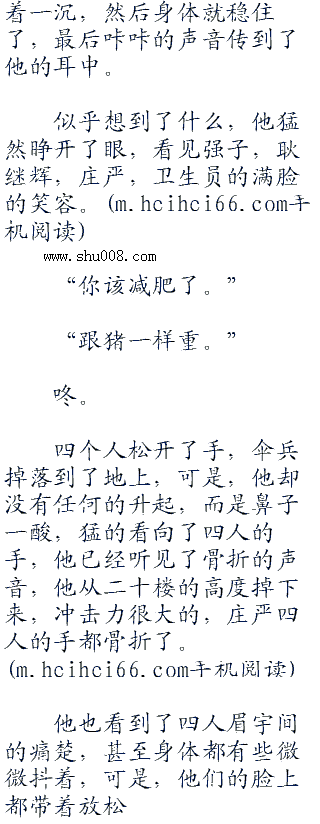 着一沉，然后身体就稳住
了，最后咔咔的声音传到了
他的耳中。
似乎想到了什么，他猛
然睁开了眼，看见强子，耿
继辉，庄严，卫生员的满脸
的笑容。(m.hcihci66.com手
机阅读)
www.shu008.com
“你该减肥了。”
“跟猪一样重。”
咚。
四个人松开了手，伞兵
掉落到了地上，可是，他却
没有任何的升起，而是鼻子
一酸，猛的看向了四人的
手，他已经听见了骨折的声
音，他从二十楼的高度掉下
来，冲击力很大的，庄严四
人的手都骨折了。
(m.hcihci66.com手机阅读)
他也看到了四人眉宇间
的痛楚，甚至身体都有些微
微抖着，可是，他们的脸上
都带着放松